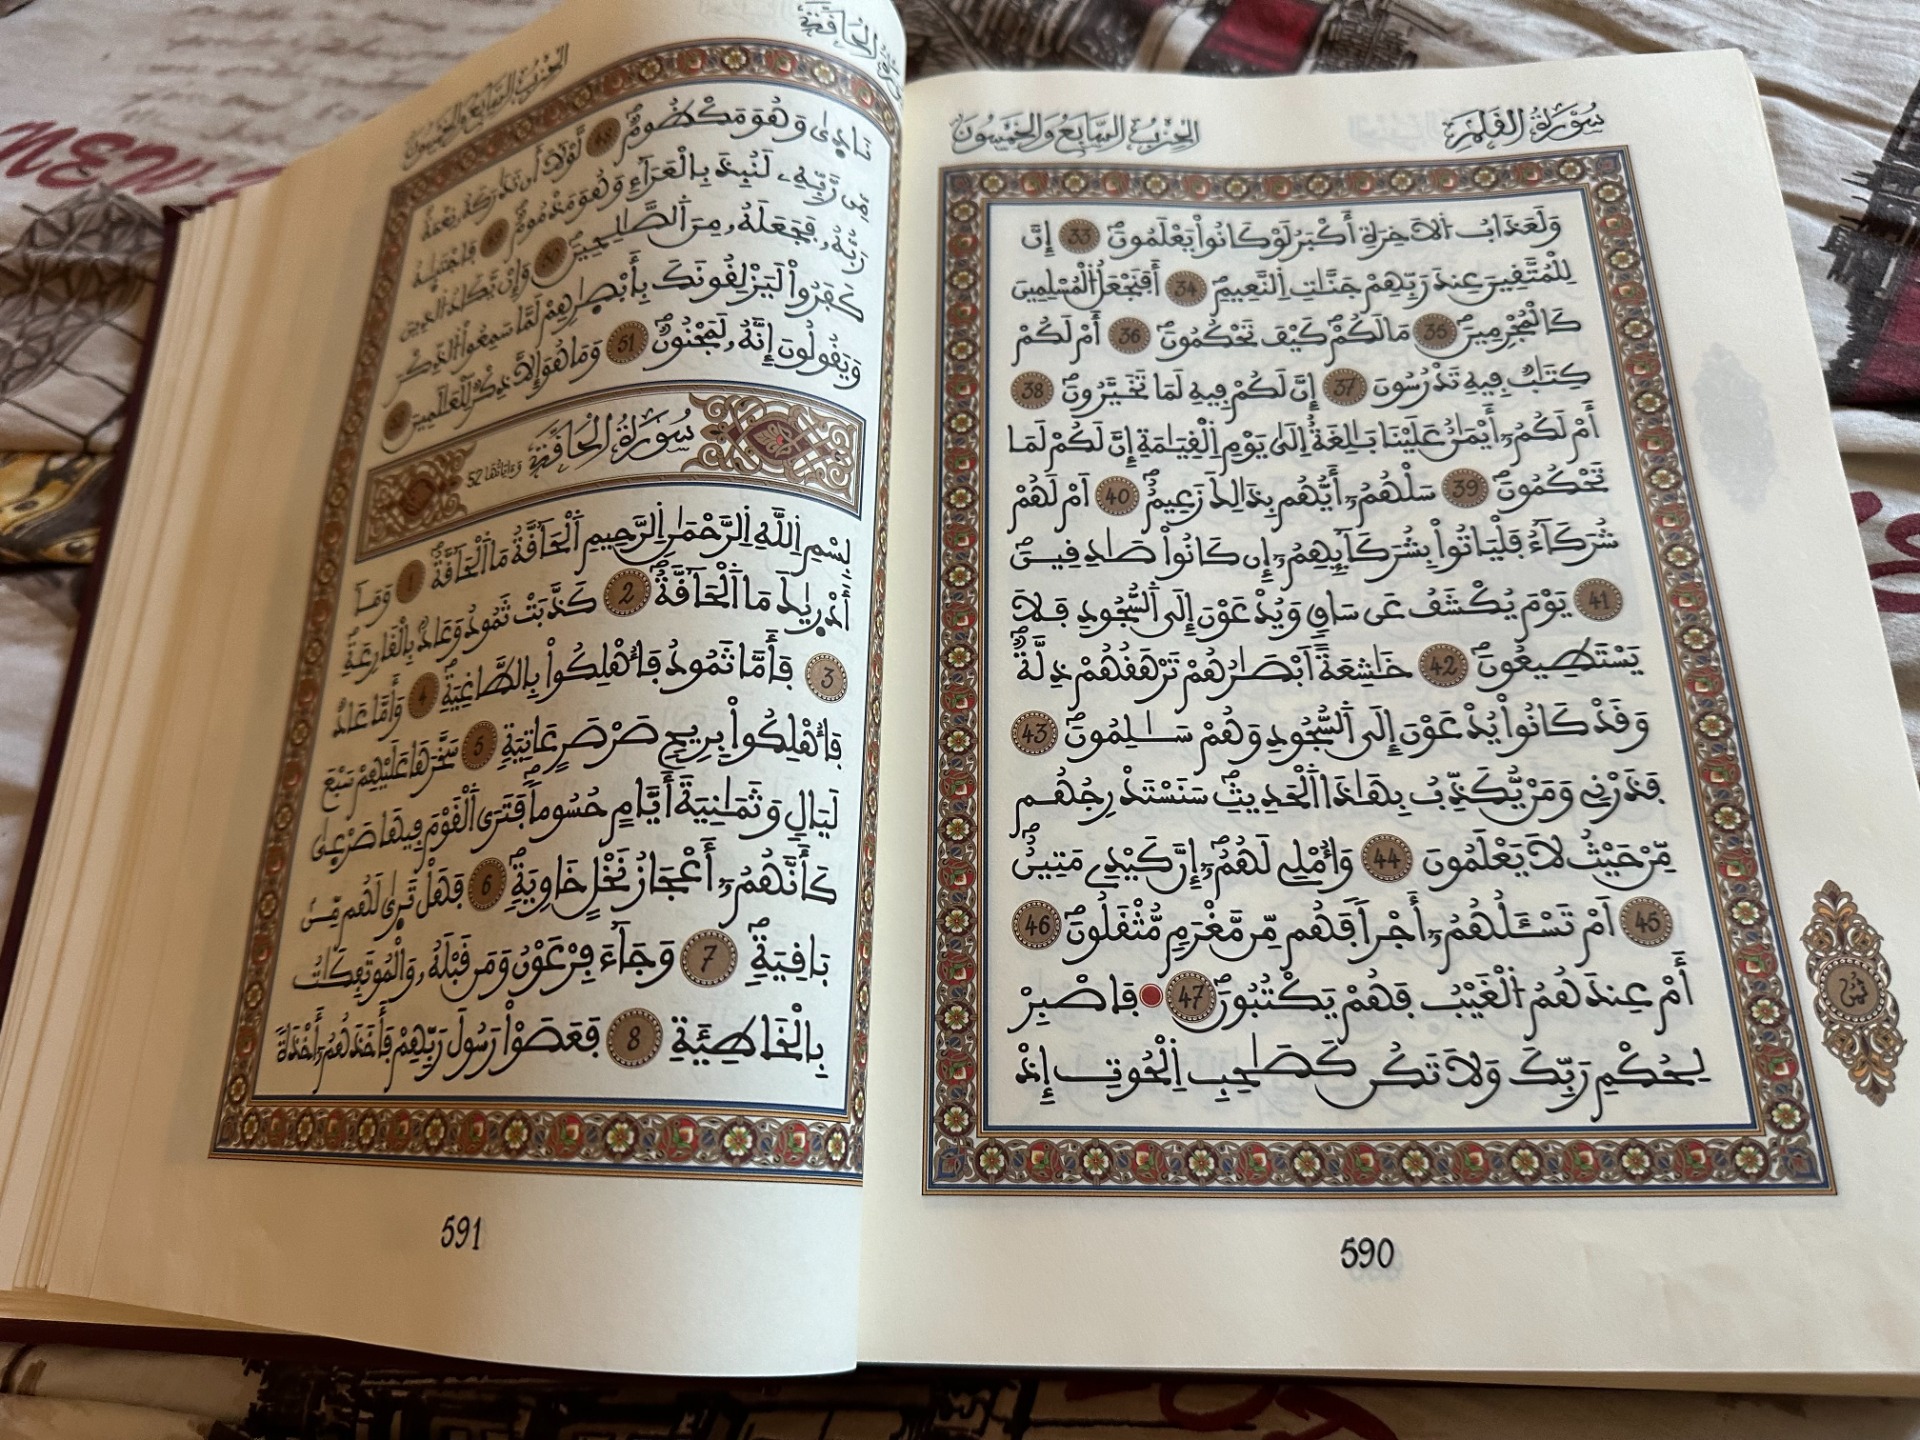 سُورَةُ الْقَلَمِ
الْحِزْبُ السَّابِعُ وَالْخَمْسُونَ
وَلَعَذَابُ اُلَاخِرَةِ أَكْبَرُ لَوْ كَانُواْ يَعْلَمُونَۖ 33 إِنَّ
لِلْمُتَّقِينَ عِندَ رَبِّهِمْ جَنَّاتِ اِلنَّعِيمِۖ 34 أَفَنَجْعَلُ اُلْمُسْلِمِينَ
كَالْمُجْرِمِينَۖ 35 مَا لَكُمْۖ كَيْفَ تَحْكُمُونَۖ 36 أَمْ لَكُمْ
كِتَٰبٌ فِيهِ تَدْرُسُونَ 37 إِنَّ لَكُمْ فِيهِ لَمَا تَخَيَّرُونَۖ 38
أَمْ لَكُمُۥٓ أَيْمَٰنٌ عَلَيْنَا بَٰلِغَةٌ إِلَىٰ يَوْمِ اِلْقِيَٰمَةِ إِنَّ لَكُمْ لَمَا
تَحْكُمُونَۖ 39 سَلْهُمُۥٓ أَيُّهُم بِذَٰلِكَ زَعِيمٌۖ 40 اَمْ لَهُمْ
شُرَكَآءُ فَلْيَاتُواْ بِشُرَكَآئِهِمُۥٓ إِن كَانُواْ صَٰدِقِينَۖ
41 يَوْمَ يُكْشَفُ عَن سَاقٍ وَيُدْعَوْنَ إِلَى اَلسُّجُودِ فَلَا
يَسْتَطِيعُونَۖ 42 خَٰشِعَةً اَبْصَٰرُهُمْ تَرْهَقُهُمْ ذِلَّةٌۖ
وَقَدْ كَانُواْ يُدْعَوْنَ إِلَى اَلسُّجُودِ وَهُمْ سَٰلِمُونَۖ 43
فَذَرْنِي وَمَنْ يُّكَذِّبُ بِهَٰذَا اَلْحَدِيثِۖ سَنَسْتَدْرِجُهُم
مِّنْ حَيْثُ لَا يَعْلَمُونَ 44 وَأُمْلِي لَهُمُۥٓۖ إِنَّ كَيْدِي مَتِينٌۖ
45 اَمْ تَسْـَٔلُهُمُۥٓ أَجْراً فَهُم مِّن مَّغْرَمٍ مُّثْقَلُونَۖ 46
أَمْ عِندَهُمُ اُلْغَيْبُ فَهُمْ يَكْتُبُونَۖ 47 فَاصْبِرْ
لِحُكْمِ رَبِّكَ وَلَا تَكُن كَصَٰحِبِ اِلْحُوتِ إِذْ
ثمن
590
سُورَةُ الْحَاقَّةِ
الْحِزْبُ السَّابِعُ وَالْخَمْسُونَ
نَادِىٰ وَهُوَ مَكْظُومٌۖ 48 لَّوْلَآ أَن تَدَٰرَكَهُۥ نِعْمَةٌ
مِّن رَّبِّهِۦ لَنُبِذَ بِالْعَرَآءِ وَهُوَ مَذْمُومٌۖ 49 فَاجْتَبَٰهُ
رَبُّهُۥ فَجَعَلَهُۥ مِنَ اَلصَّٰلِحِينَۖ 50 وَإِنْ يَّكَادُ الذِينَ
كَفَرُواْ لَيَزْلِقُونَكَ بِأَبْصَٰرِهِمْ لَمَّا سَمِعُواْ الذِّكْرَ
وَيَقُولُونَ إِنَّهُۥ لَمَجْنُونٌۖ 51 وَمَا هُوَ إِلَّا ذِكْرٌ لِّلْعَٰلَمِينَۖ 52
سُورَةُ الْحَاقَّةِ وءاياتها 52
بِسْمِ اِللَّهِ اِلرَّحْمَٰنِ اِلرَّحِيمِ اِلْحَآقَّةُ مَا اَلْحَآقَّةُۖ 1 وَمَآ
أَدْرِيٰكَ مَا اَلْحَآقَّةُۖ 2 كَذَّبَتْ ثَمُودُ وَعَادٌۢ بِالْقَارِعَةِۖ
3 فَأَمَّا ثَمُودُ فَأُهْلِكُواْ بِالطَّاغِيَةِۖ 4 وَأَمَّا عَادٌ
فَأُهْلِكُواْ بِرِيحٍ صَرْصَرٍ عَاتِيَةٍ 5 سَخَّرَهَا عَلَيْهِمْ سَبْعَ
لَيَالٍ وَثَمَٰنِيَةَ أَيَّامٍ حُسُوماًۖ فَتَرَى اَلْقَوْمَ فِيهَا صَرْعِىٰ
كَأَنَّهُمُۥٓ أَعْجَازُ نَخْلٍ خَاوِيَةٍۖ 6 فَهَلْ تَرِىٰ لَهُم مِّنۢ
بَاقِيَةٍۖ 7 وَجَآءَ فِرْعَوْنُ وَمَن قَبْلَهُۥ وَالْمُوتَفِكَٰتُ
بِالْخَاطِئَةِ 8 فَعَصَوْاْ رَسُولَ رَبِّهِمْ فَأَخَذَهُمُۥٓ أَخْذَةً
591